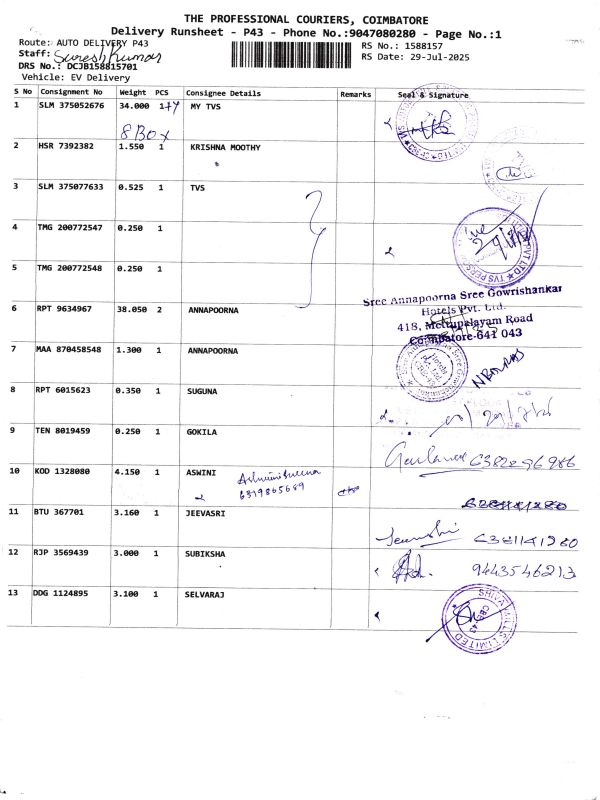 THE PROFESSIONAL COURIERS, COIMBATORE
Delivery Runsheet - P43 - Phone No.:9047080280 - Page No.:1
Route: AUTO DELIVERY P43 RS No.: 1588157
Staff: Suresh Kumar RS Date: 29-Jul-2025
DRS No.: DCJB158815701
Vehicle: EV Delivery
S No Consignment No Weight PCS Consignee Details Remarks Seal & Signature
1 SLM 375052676 34.000 1 MY TVS
8 Box
2 HSR 7392382 1.550 1 KRISHNA MOOTHY
3 SLM 375077633 0.525 1 TVS
4 TMG 200772547 0.250 1
5 TMG 200772548 0.250 1
Sree Annapoorna Sree Gowrishankar
Hotels Pvt. Ltd.
6 RPT 9634967 38.050 2 ANNAPOORNA
418, Mettupalayam Road
Coimbatore-641 043
7 MAA 870458548 1.300 1 ANNAPOORNA
8 RPT 6015623 0.350 1 SUGUNA
9 TEN 8019459 0.250 1 GOKILA
6382296986
10 KOD 1328080 4.150 1 ASWINI
11 BTU 367701 3.160 1 JEEVASRI
6381141980
12 RJP 3569439 3.000 1 SUBIKSHA
9443546213
13 DDG 1124895 3.100 1 SELVARAJ